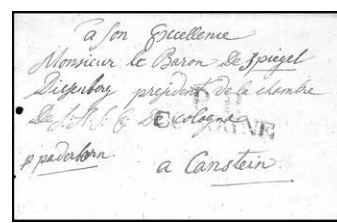 a Son Excellence
Monsieur le Baron De Spiegel
Diesenberg president de la chambre
De S. A. S. E. De cologne
COLOGNE
p paderborn.
a Canstein.